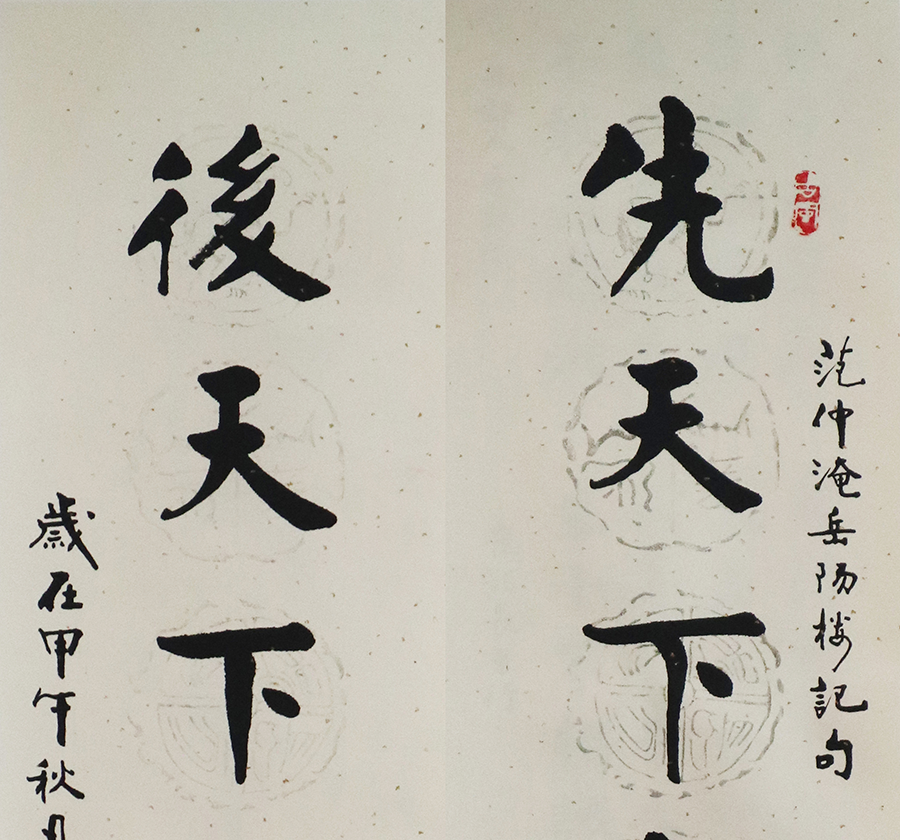 范仲淹岳阳楼記句
先天下
後天下
歲在甲午秋月